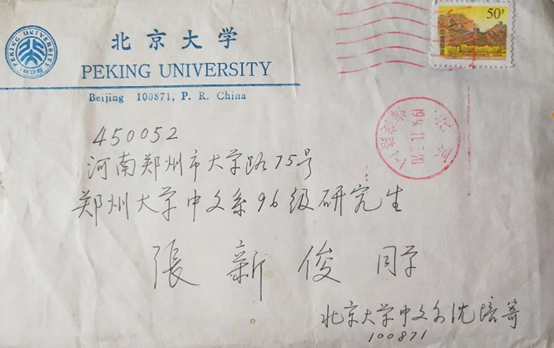 PEKING UNIVERSITY
北京大学
PEKING UNIVERSITY
Beijing 100871, P. R. China
50分
450052
河南郑州市大学路75号
郑州大学中文系96级研究生
張新俊 同学
北京大学中文系沈培寄
100871